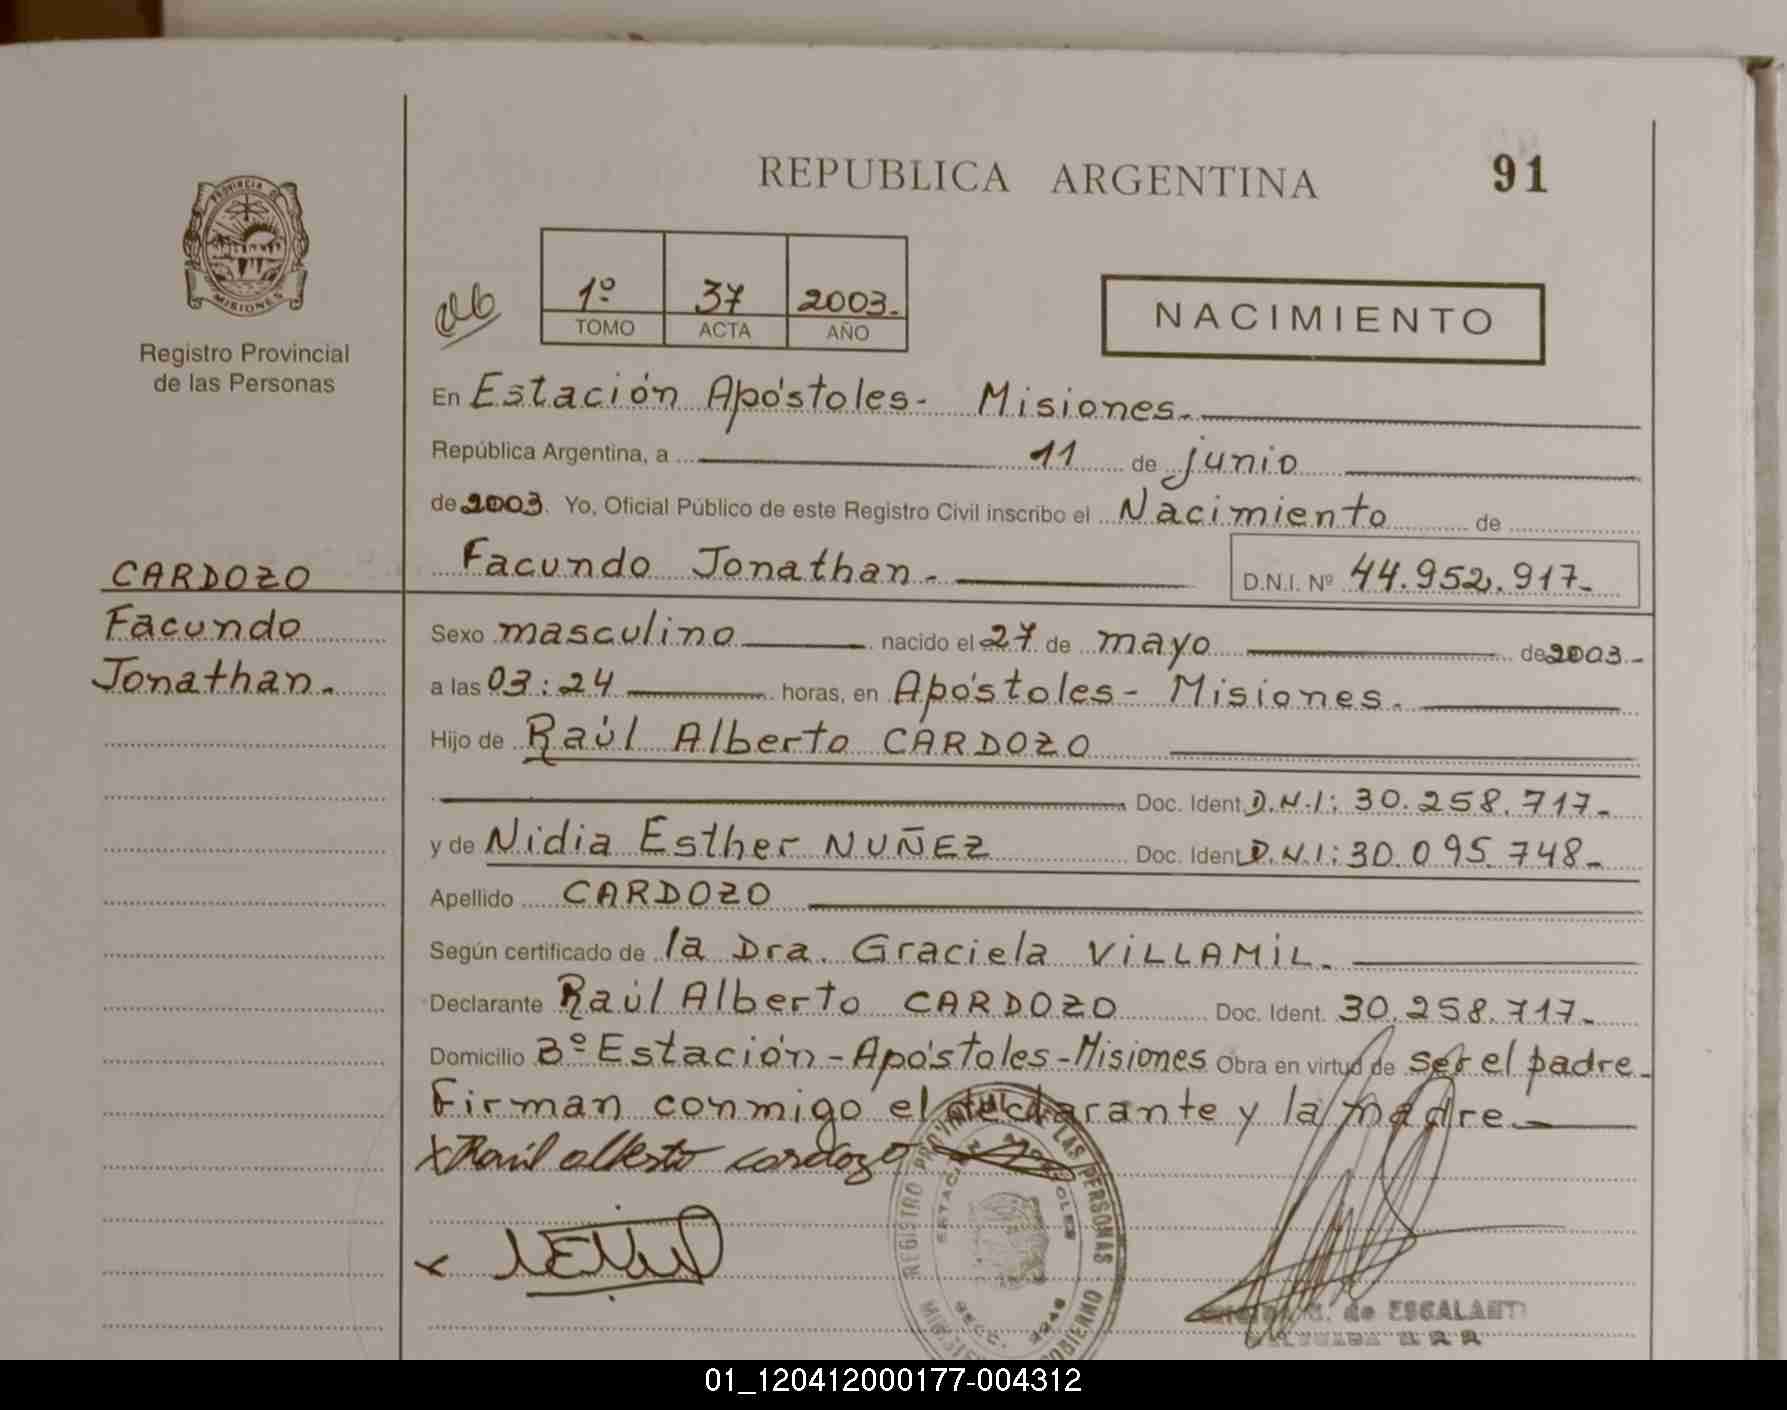 REPUBLICA ARGENTINA
91
PROVINCIA D
MISIONES
Registro Provincial
de las Personas
1º 37 2003.
TOMO ACTA AÑO
NACIMIENTO
En Estación Apóstoles- Misiones.
República Argentina, a 11 de junio
de 2003. Yo, Oficial Público de este Registro Civil inscribo el Nacimiento de
Facundo Jonathan- D.N.I. Nº 44.952.917-
CARDOZO
Facundo
Jonathan.
Sexo masculino nacido el 27 de mayo de 2003-
a las 03:24 horas, en Apóstoles- Misiones.
Hijo de Raúl Alberto CARDOZO
Doc. Ident. D.N.I: 30.258.717-
y de Nidia Esther NUÑEZ Doc. Ident. D.N.I: 30.095.748-
Apellido CARDOZO
Según certificado de la Dra. Graciela VILLAMIL.
Declarante Raúl Alberto CARDOZO Doc. Ident. 30.258.717-
Domicilio Bº Estación-Apóstoles-Misiones Obra en virtud de ser el padre-
Firman conmigo el declarante y la madre
x Raúl alberto cardozo
REGISTRO PROVINCIAL DE LAS PERSONAS
de ESCALANT
01_120412000177-004312